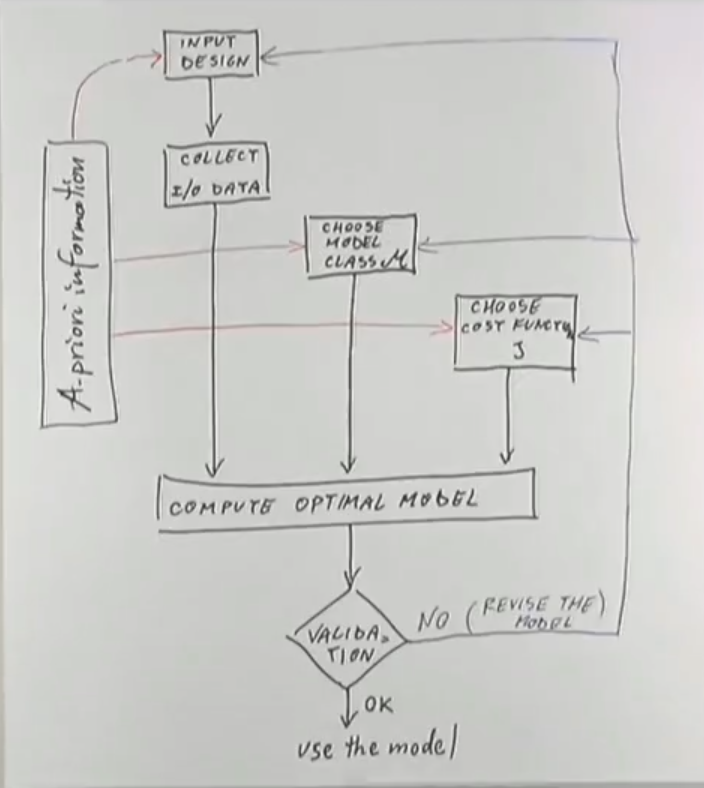 INPUT
DESIGN
COLLECT
I/O DATA
A-priori information
CHOOSE
MODEL
CLASS M
CHOOSE
COST FUNCTN
J
COMPUTE OPTIMAL MODEL
VALIDA-
TION
NO (REVISE THE
MODEL)
OK
use the model